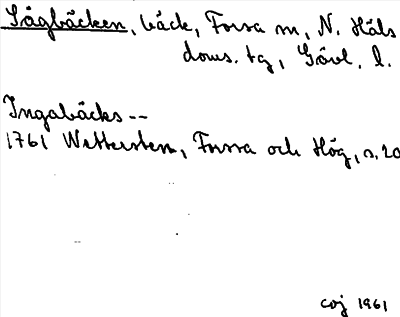 Sågbäcken, bäck, Forsa sn, N. Häls
doms. tg, Gävl. l.
Ingabäcks --
1761 Wetterstem, Forssa och Hög, s. 20
coj 1961